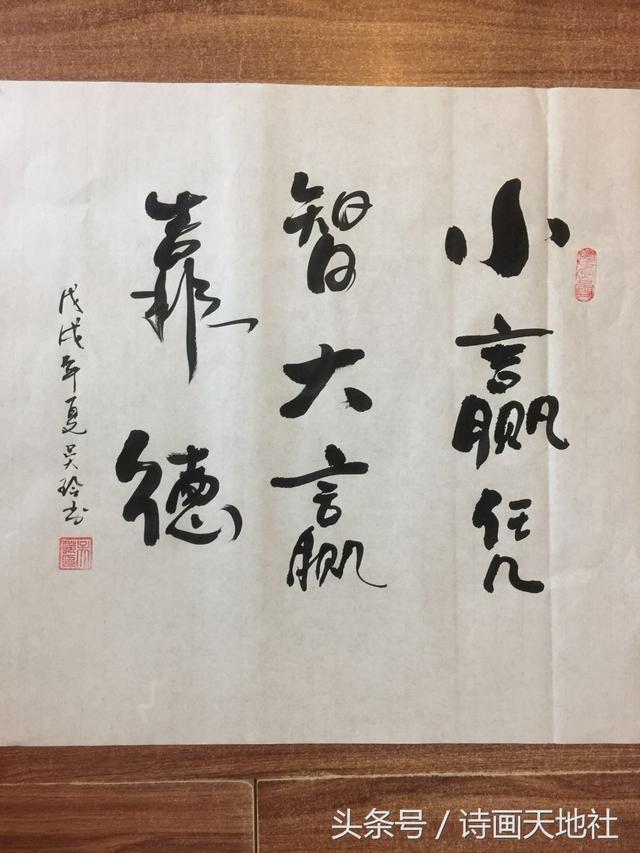 小赢凭
智大赢
靠德
戊戌年夏吴玲书
头条号 / 诗画天地社